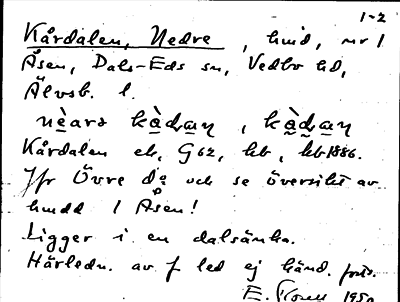 1-2
Kårdalen, Nedre, hmd, nr 1
Åsen, Dals-Eds sn, Vedbo hd,
Älvsb. l.
Kårdalen ek, G62, hb, hb 1886.
Jfr Övre do och se översikt av
hmdd / Åsen!
Ligger i en dalsänka.
Härledn. av f led ej känd.
E. 1950